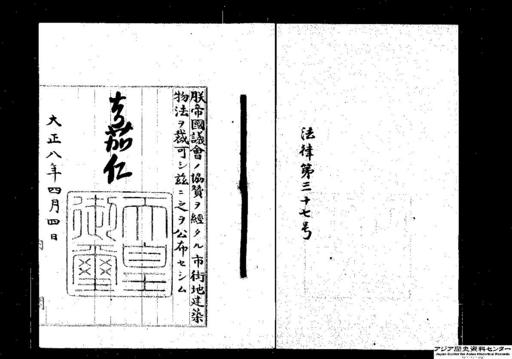 法律第三十七号
朕帝國議會ノ協賛ヲ經タル市街地建築
物法ヲ裁可シ茲ニ之ヲ公布セシム
嘉仁
天皇
御璽
大正八年四月四日
アジア歴史資料センター
Japan Center for Asian Historical Records